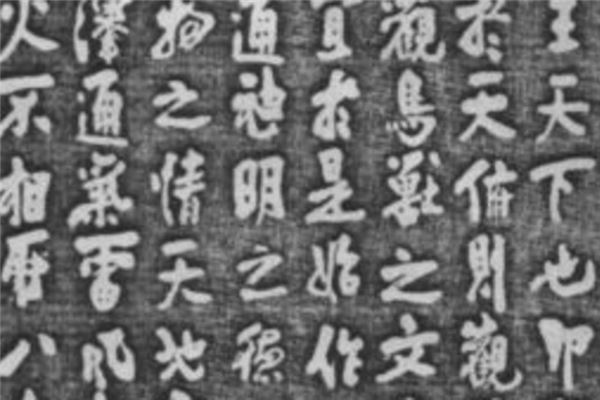 王天下也仰
於天俯則觀
觀鳥獸之文
宜於是始作
通神明之德
物之情天地
澤通氣雷風
火不相八